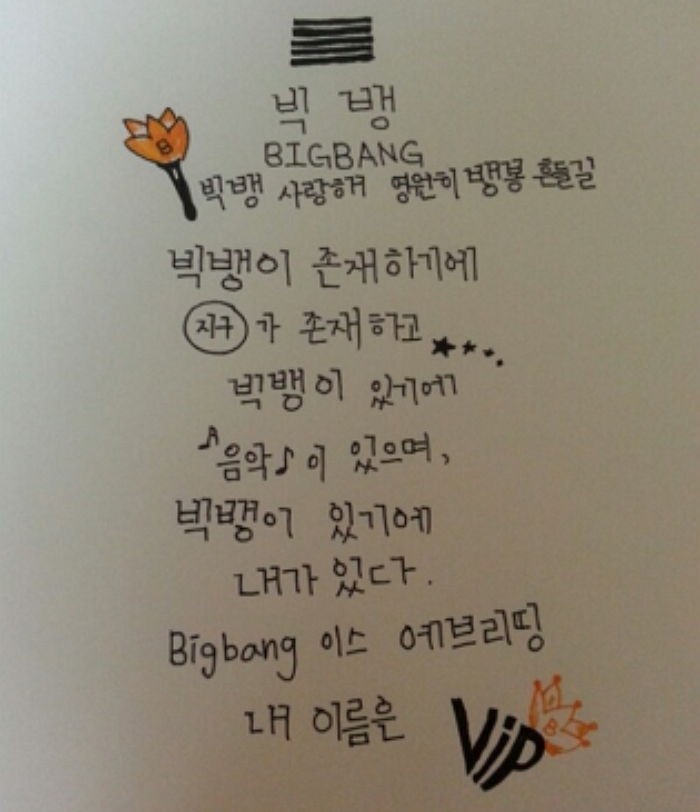 빅 뱅
BIGBANG
빅뱅 사랑하거 영원히 뱅봉 흔들길
빅뱅이 존재하기에
지구가 존재하고
빅뱅이 있기에
음악이 있으며,
빅뱅이 있기에
내가 있다.
Bigbang 이스 에브리띵
내 이름은 VIP